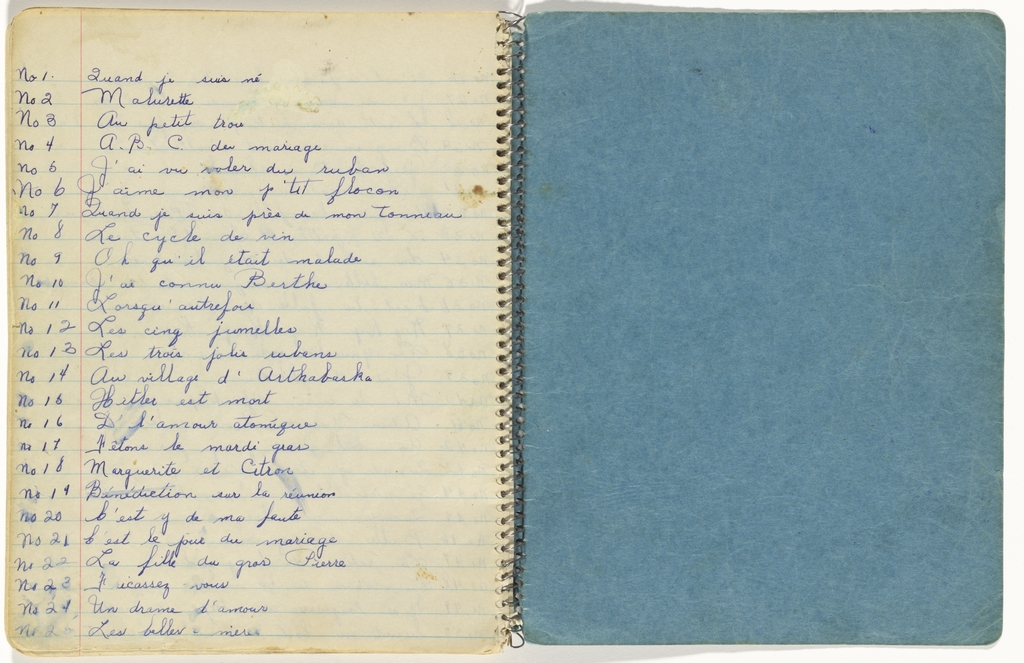 No 1. Quand je suis né
No 2 Malurette
No 3 Au petit trou
No 4 A.B.C. du mariage
No 5 J'ai vu voler du ruban
No 6 J'aime mon p'tit flocon
No 7 Quand je suis près de mon tonneau
No 8 Le cycle de vin
No 9 Oh qu'il était malade
No 10 J'ai connu Berthe
No 11 Lorsqu'autrefois
No 12 Les cinq jumelles
No 13 Les trois jolis rubans
No 14 Au village d'Arthabaska
No 15 Hitler est mort
No 16 D l'amour atomique
No 17 Fêtons le mardi gras
No 18 Marguerite et Citron
No 19 Bénédiction sur la réunion
No 20 C'est y de ma faute
No 21 C'est le pire du mariage
No 22 La fille du gros Pierre
No 23 Fricassez-vous
No 24, Un drame d'amour
No 25 Les belles-mères